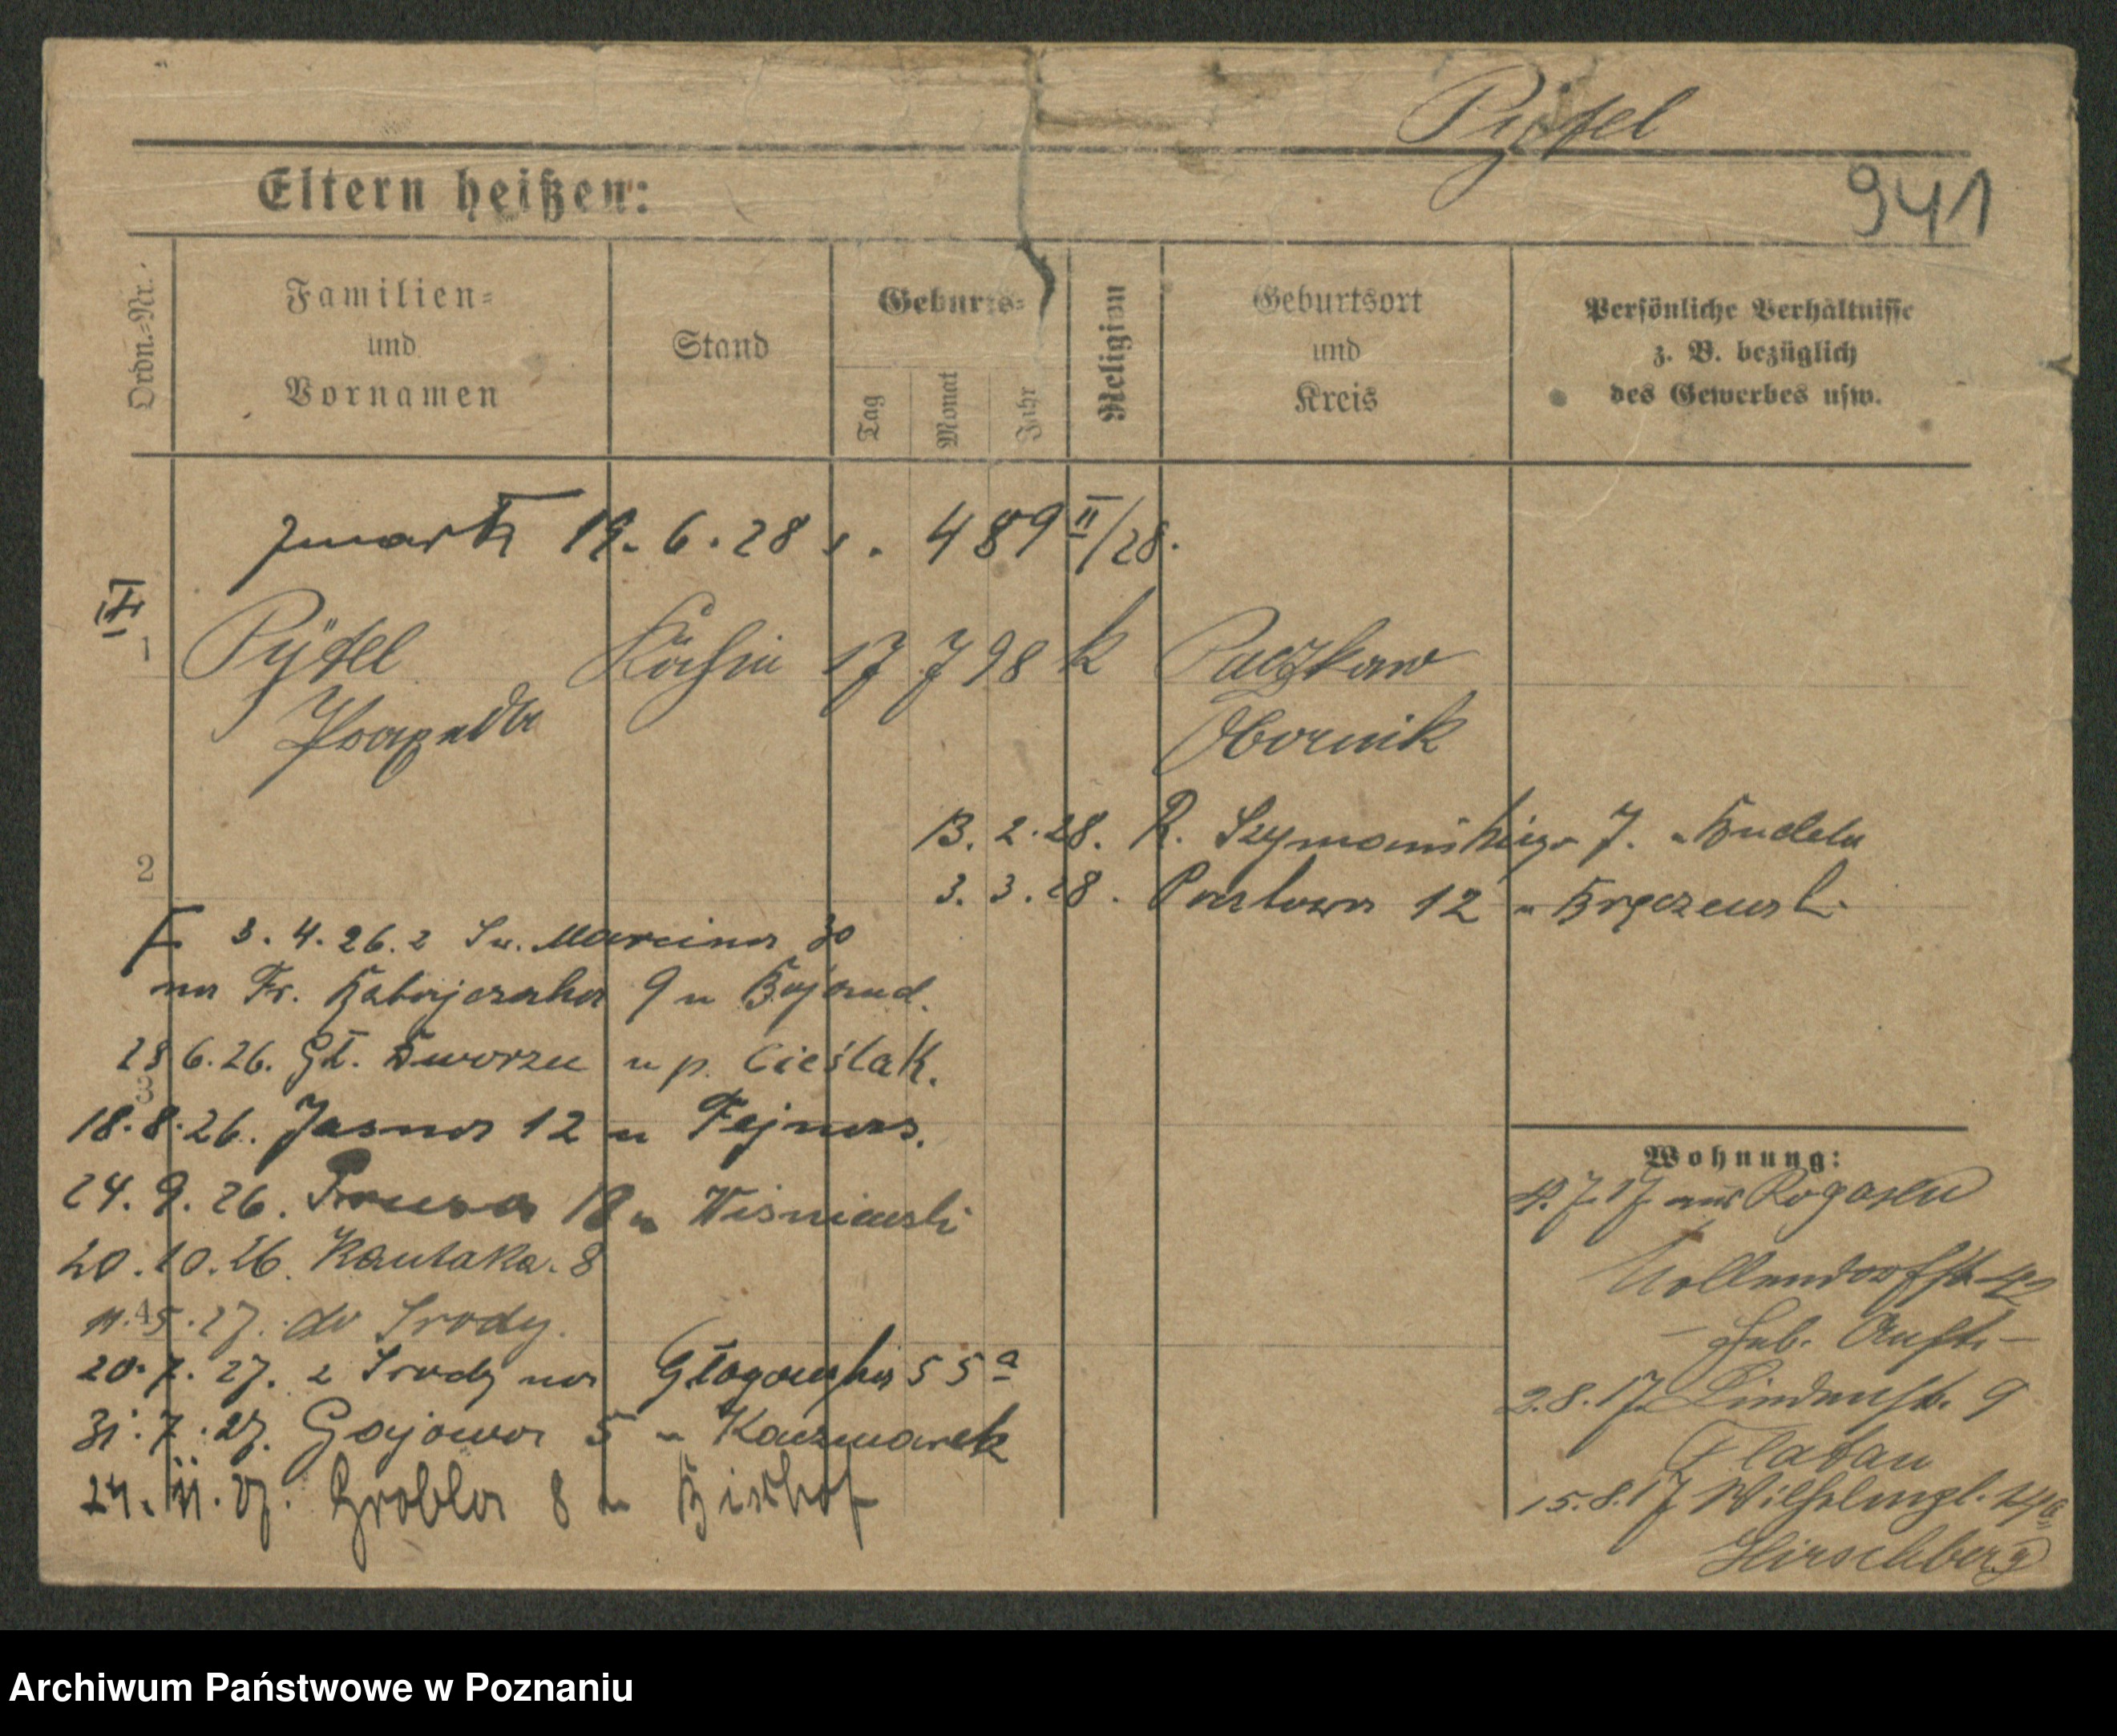 Pytel
941
Eltern heißen:
Ordn.=Nr.
Familien=
und
Vornamen
Stand
Geburts=
Tag
Monat
Jahr
Religion
Geburtsort
und
Kreis
Persönliche Verhältnisse
z. B. bezüglich
des Gewerbes usw.
zmarła 19. 6. 28 489 II/28.
1 Pytel Köchin 17 7 98 k Paczkowo
Praxeda Obornik
13. 2. 28. R. Szymańskiego 7.
2
3. 3. 28. Pocztowa 12 u
3. 4. 26. z Św. Marcina 30
na Fr. Ratajczaka 9 u
28 6. 26. Gł. Dworzec u p. Cieślak.
3
18. 8. 26. Jasna 12 u
24. 9. 26. Prusa u Wiśniewski
20. 10. 26. Kantaka. 8
4
11. 5. 27. do Środy.
20. 7. 27. z Środy na Głogowska 55a
31. 7. 27. Gajowa 5 u Kaczmarek
24. 11. 27. Grobla 8 u Bischof
Wohnung:
7. 17 aus Rogasen
Nollendorfstr.
2. 8. 17 Lindenstr. 9
Flatau
15. 8. 17 Wilhelmpl. 14a
Hirschberg
Archiwum Państwowe w Poznaniu